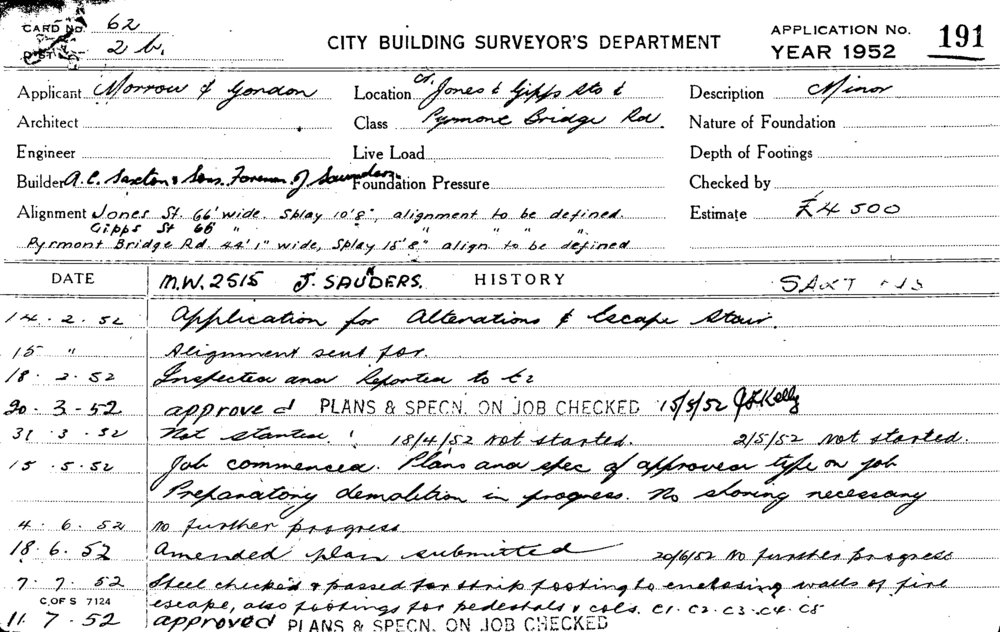 CARD No. 62
DIST. 2 b.
CITY BUILDING SURVEYOR'S DEPARTMENT
APPLICATION No. 191
YEAR 1952
Applicant Morrow & Gordon Location Cr. Jones & Gipps Sts & Description Minor
Architect Class Pyrmont Bridge Rd. Nature of Foundation
Engineer Live Load Depth of Footings
Builder A. C. Saxton & Sons. Foreman. J Saunders. Foundation Pressure Checked by
Alignment Jones St. 66' wide. Splay 10'8", alignment to be defined. Estimate £4 500
Gipps St 66' " " " " "
Pyrmont Bridge Rd. 44'1" wide, Splay 15'8" align to be defined
DATE M.W. 2515 J. SAUNDERS. HISTORY
14. 2. 52 Application for Alterations & Escape Stair.
15 " Alignment sent for.
18. 2. 52 Inspected and Reported to
20. 3. 52 approved PLANS & SPECN. ON JOB CHECKED 15/5/52 Kelly
31. 3. 52 Not started. 18/4/52 Not started. 2/5/52 Not started.
15. 5. 52 Job commenced. Plans and spec of approved type on job
Preparatory demolition in progress. No shoring necessary
4. 6. 52 No further progress
18. 6. 52 Amended plan submitted 20/6/52 No further progress
7. 7. 52 Steel checked & passed for strip footing to enclosing walls of fire
C. OF S 7124 escape, also footings for pedestals & cols. C1. C2. C3. C4. C5
11. 7. 52 approved PLANS & SPECN. ON JOB CHECKED